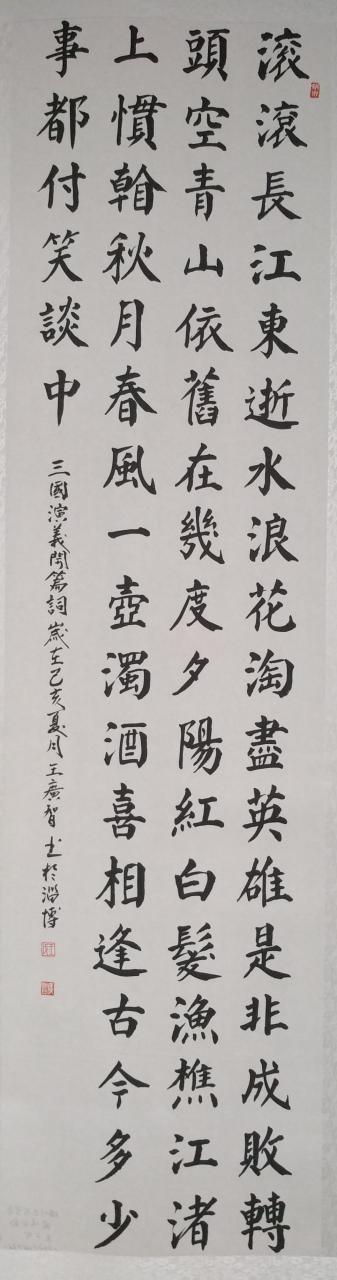 滚滾長江東逝水浪花淘盡英雄是非成敗轉
頭空青山依舊在幾度夕陽紅白髮漁樵江渚
上慣看秋月春風一壺濁酒喜相逢古今多少
事都付笑談中
三國演義開篇詞歲在己亥夏月王廣智书於淄博